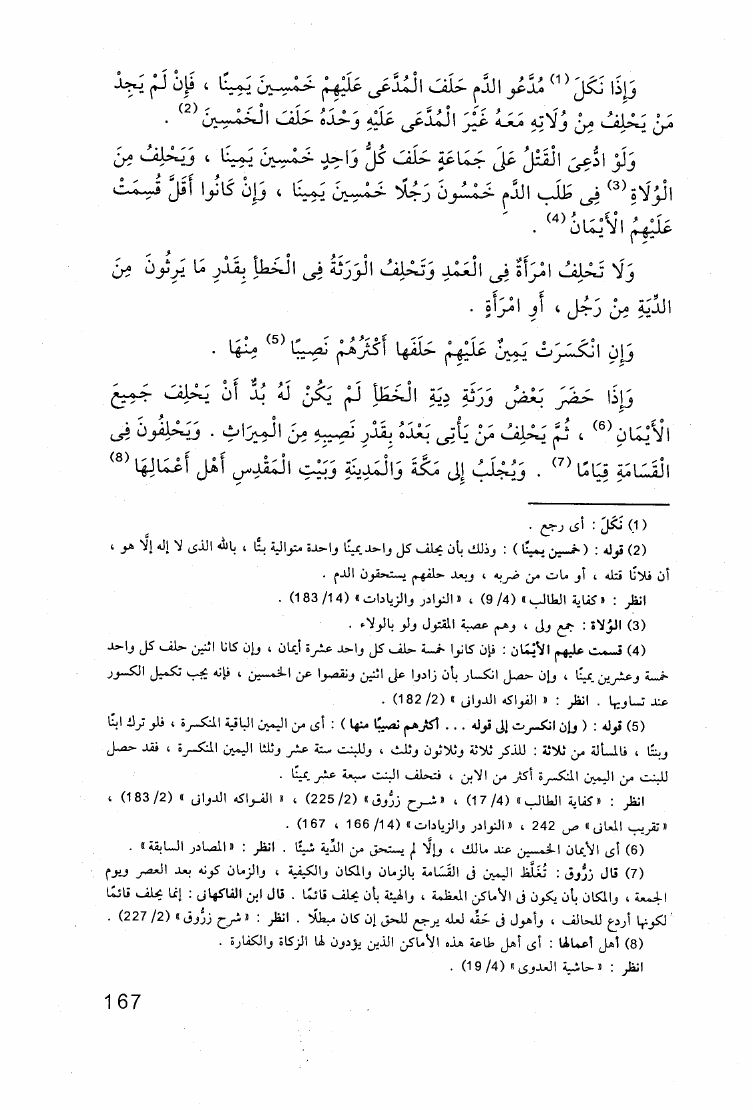 وَإِذَا نَكَلَ (1) مُدَّعُو الدَّمِ حَلَفَ الْمُدَّعَى عَلَيْهِمْ خَمْسِينَ يَمِينًا ، فَإِنْ لَمْ يَجِدْ
مَنْ يَحْلِفُ مِنْ وُلَاتِهِ مَعَهُ غَيْرَ الْمُدَّعَى عَلَيْهِ وَحْدَهُ حَلَفَ الْخَمْسِينَ (2) .
وَلَوْ ادُّعِىَ الْقَتْلُ عَلَى جَمَاعَةٍ حَلَفَ كُلُّ وَاحِدٍ خَمْسِينَ يَمِينًا ، وَيَحْلِفُ مِنَ
الْوُلَاةِ (3) فِى طَلَبِ الدَّمِ خَمْسُونَ رَجُلًا خَمْسِينَ يَمِينًا ، وَإِنْ كَانُوا أَقَلَّ قُسِمَتْ
عَلَيْهِمُ الْأَيْمَانُ (4) .
وَلَا تَحْلِفُ امْرَأَةٌ فِى الْعَمْدِ وَتَحْلِفُ الْوَرَثَةُ فِى الْخَطَأِ بِقَدْرِ مَا يَرِثُونَ مِنَ
الدِّيَةِ مِنْ رَجُلٍ ، أَوِ امْرَأَةٍ .
وَإِنِ انْكَسَرَتْ يَمِينٌ عَلَيْهِمْ حَلَفَها أَكْثَرُهُمْ نَصِيبًا (5) مِنْهَا .
وَإِذَا حَضَرَ بَعْضُ وَرَثَةِ دِيَةِ الْخَطَأِ لَمْ يَكُنْ لَهُ بُدٌّ أَنْ يَحْلِفَ جَمِيعَ
الْأَيْمَانِ (6) ، ثُمَّ يَحْلِفُ مَنْ يَأْتِى بَعْدَهُ بِقَدْرِ نَصِيبِهِ مِنَ الْمِيرَاثِ . وَيَحْلِفُونَ فِى
الْقَسَامَةِ قِيَامًا (7) . وَيُجْلَبُ إِلَى مَكَّةَ وَالْمَدِينَةِ وَبَيْتِ الْمَقْدِسِ أَهْلُ أَعْمَالِهَا (8)
(1) نَكَلَ : أى رجع .
(2) قوله : ( خمسين يمينًا ) : وذلك بأن يحلف كل واحد يمينًا واحدة متوالية بتًّا ، بالله الذى لا إله إلَّا هو ،
أن فلانًا قتله ، أو مات من ضربه ، وبعد حلفهم يستحقون الدم .
انظر : « كفاية الطالب » (4/ 9) ، « النوادر والزيادات » (14/ 183) .
(3) الوُلاة : جمع ولى ، وهم عصبة المقتول ولو بالولاء .
(4) قسمت عليهم الأيْمَان : فإن كانوا خمسة حلف كل واحد عشرة أيمان ، وإن كانا اثنين حلف كل واحد
خمسة وعشرين يمينًا ، وإن حصل انكسار بأن زادوا على اثنين ونقصوا عن الخمسين ، فإنه يجب تكميل الكسور
عند تساويها . انظر : « الفواكه الدوانى » (2/ 182) .
(5) قوله : ( وإن انكسرت إلى قوله ... أكثرهم نصيبًا منها ) : أى من اليمين الباقية المنكسرة ، فلو ترك ابنًا
وبنتًا ، فالمسألة من ثلاثة : للذكر ثلاثة وثلاثون وثلث ، وللبنت ستة عشر وثلثا اليمين المنكسرة ، فقد حصل
للبنت من اليمين المنكسرة أكثر من الابن ، فتحلف البنت سبعة عشر يمينًا .
انظر : « كفاية الطالب » (4/ 17) ، « شرح زرُّوق » (2/ 225) ، « الفواكه الدوانى » (2/ 183) ،
« تقريب المعانى » ص 242 ، « النوادر والزيادات » (14/ 166 ، 167) .
(6) أى الأيمان الخمسين عند مالك ، وإلَّا لم يستحق من الدِّية شيئًا . انظر : « المصادر السابقة » .
(7) قال زرُّوق : تُغَلَّظ اليمين فى القَسَامة بالزمان والمكان والكيفية ، والزمان كونه بعد العصر ويوم
الجمعة ، والمكان بأن يكون فى الأماكن المعظمة ، والهيئة بأن يحلف قائمًا . قال ابن الفاكهانى : إنما يحلف قائمًا
لكونها أردع للحالف ، وأهول فى حَقِّه لعله يرجع للحق إن كان مبطلًا . انظر : « شرح زرُّوق » (2/ 227) .
(8) أهل أعمالها : أى أهل طاعة هذه الأماكن الذين يؤدون لها الزكاة والكفارة .
انظر : « حاشية العدوى » (4/ 19) .
167